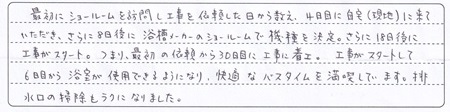 最初にショールームを訪問し工事を依頼した日から数え、4日目に自宅(現地)に来て
いただき、さらに8日後に浴槽メーカーのショールームで機種を決定。さらに18日後に
工事がスタート。つまり、最初の依頼から30日目に工事に着工。工事がスタートして
6日目から浴室が使用できるようになり、快適なバスタイムを満喫しています。排
水口の掃除もラクになりました。